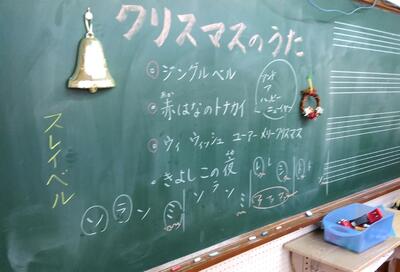 クリスマスのうた
ジングルベル
赤はなのトナカイ
あか
ウィ ウィッシュ ユーアーメリークリスマス
きよしこの夜
アンド
ア
ハッピー
ニューイヤー
スレイベル
ソ ラ ン ミ
ソ ラ ン ミ